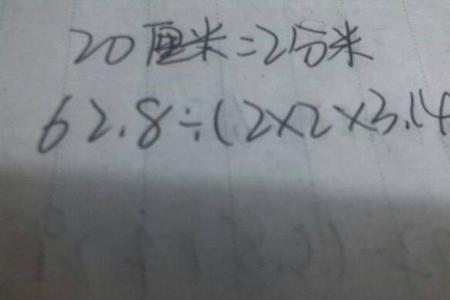 20厘米=2分米
62.8÷(2×2×3.14